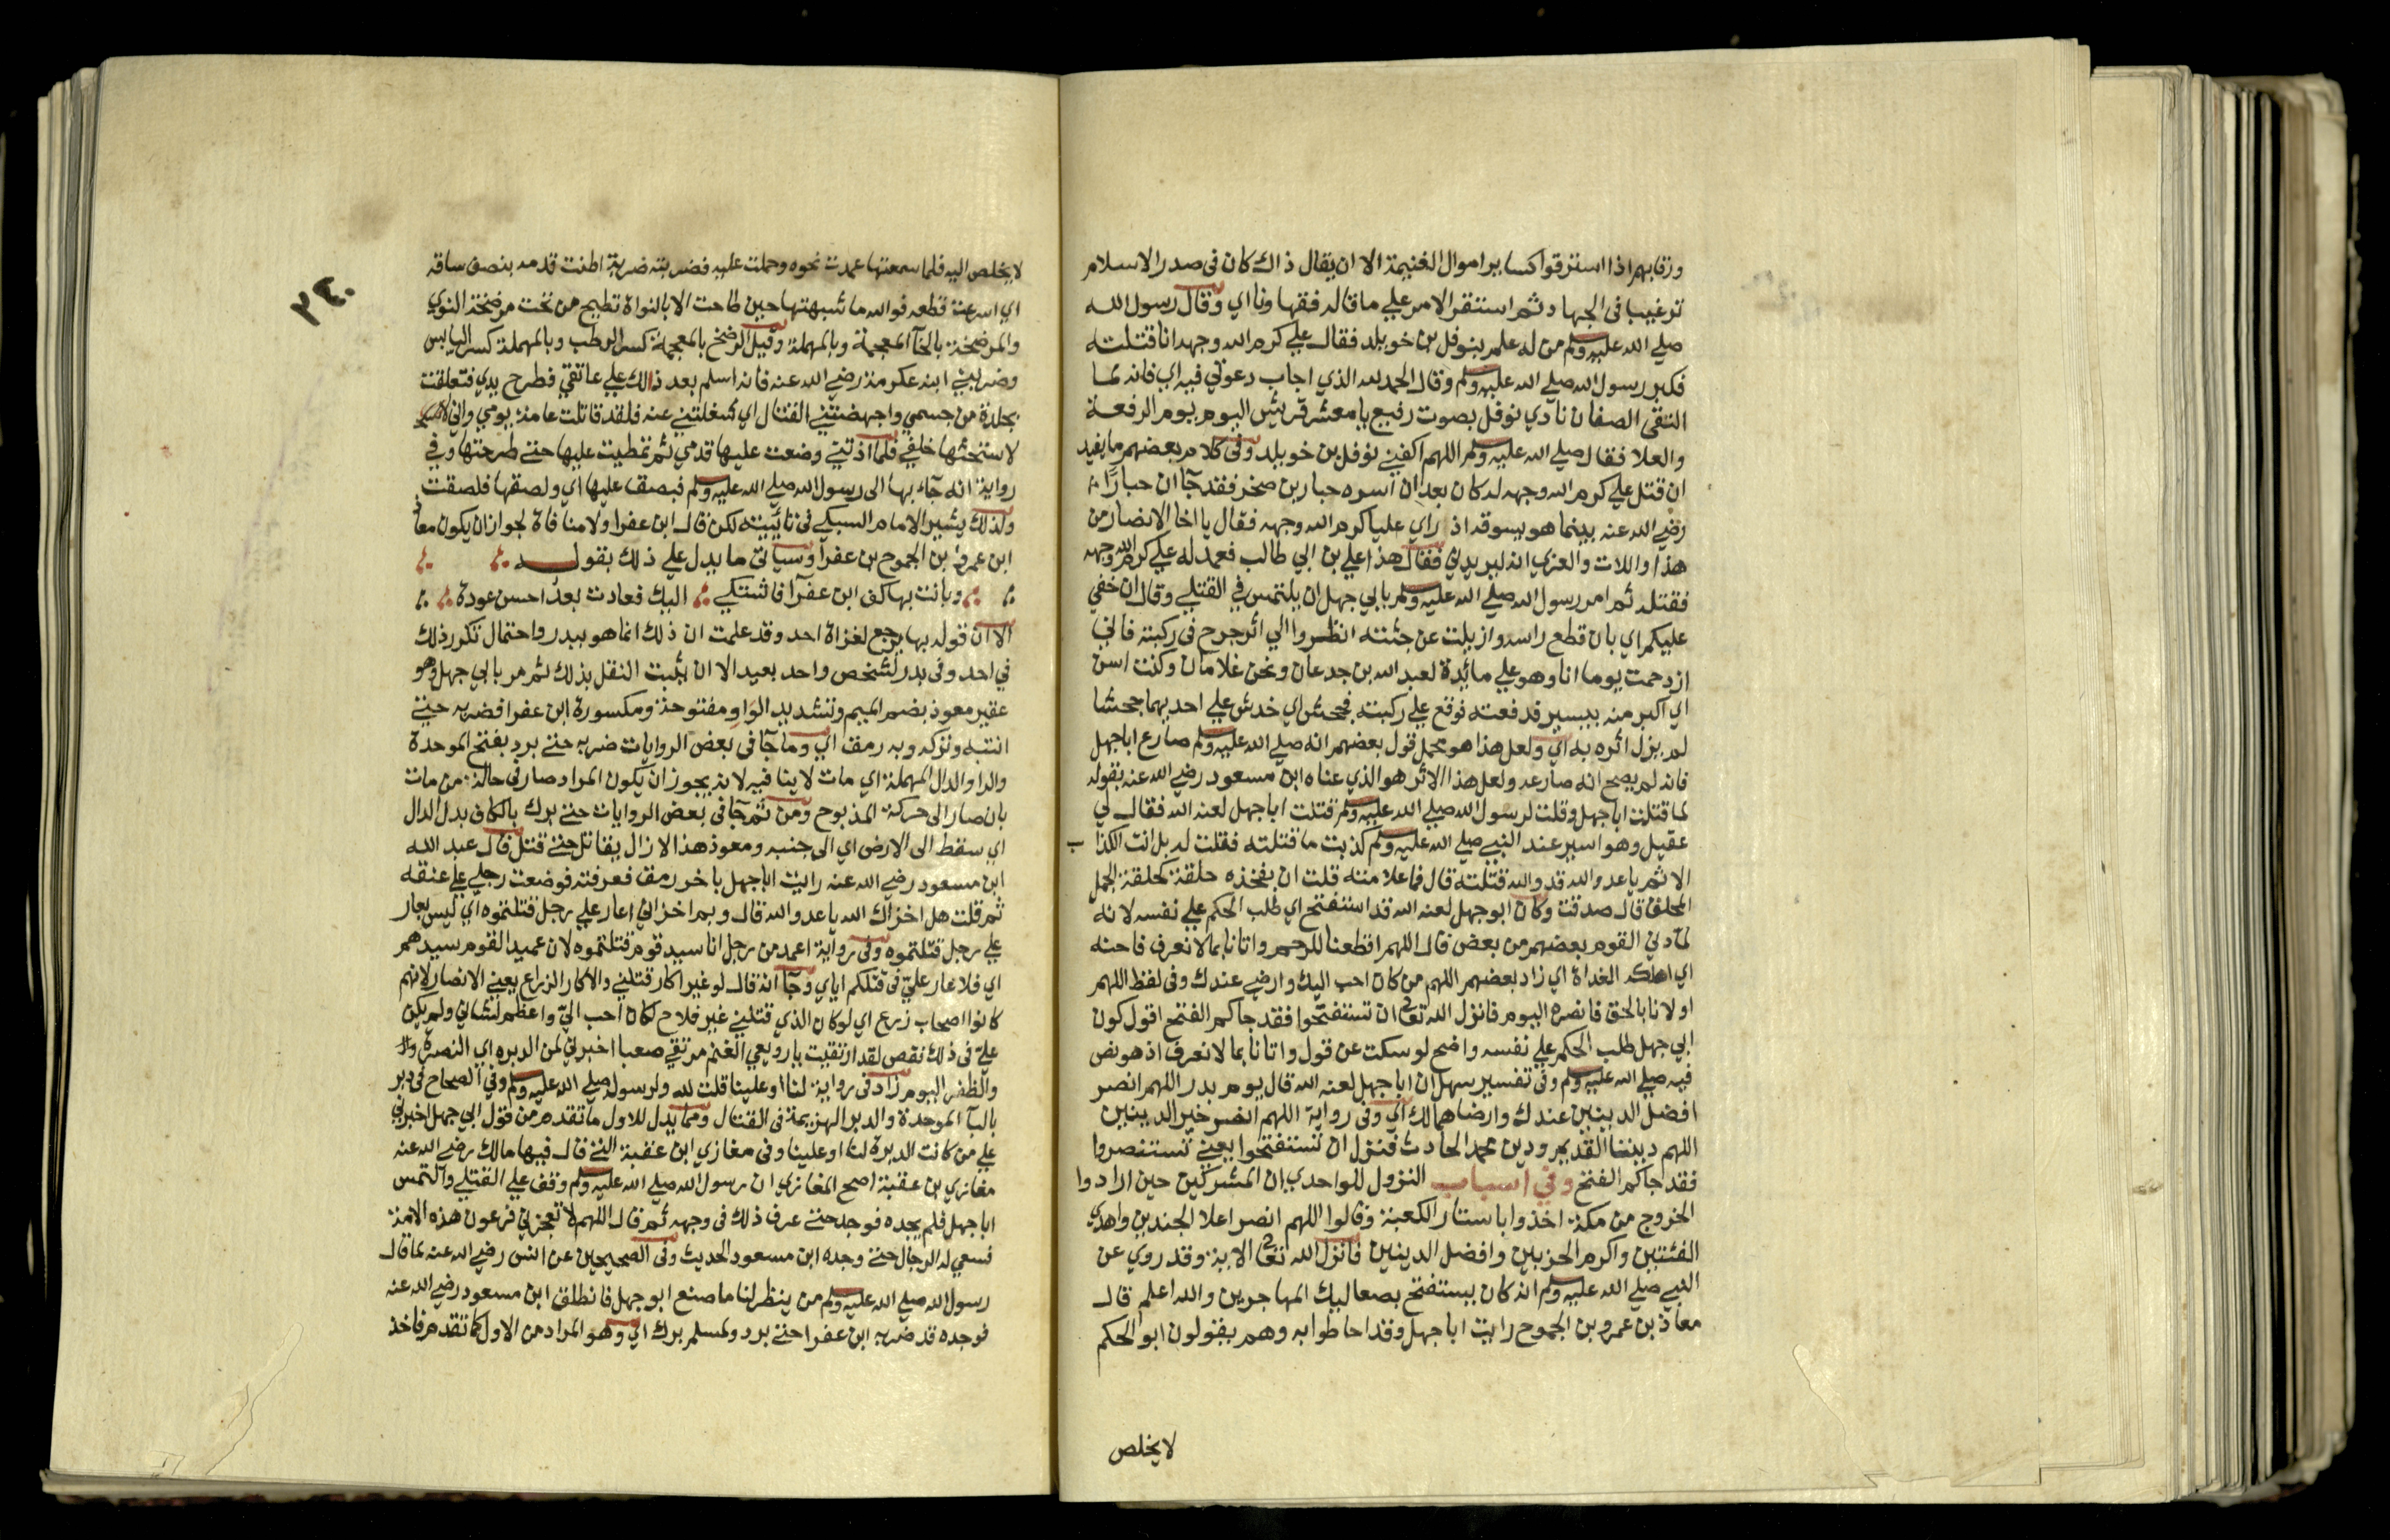 ورقابهم اذا استرقوا كساير اموال الغنيمة الا ان يقال ذاك كان فى صدر الاسلام
ترغيبا فى الجهاد ثم استقر الامر علي ما قاله فقهاوناي اي وقال رسول الله
صلي الله عليه وسلم من له علم بنوفل بن خويلد فقال علي كرم الله وجهه انا قتلته
فكبر رسول الله صلي الله عليه وسلم وقال الحمد لله الذي اجاب دعوتي فيه اي فانه لما
التقى الصفان نادي نوفل بصوت رفيع يا معشر قريش اليوم يوم الرفعة
والعلا فقال صلي الله عليه وسلم اللهم اكفني نوفل بن خويلد وفى كلام بعضهم ما يفيد
ان قتل علي كرم الله وجهه له كان بعد ان اسره جبار بن صخر فقد جآ ان جبارًا
رضي الله عنه بينما هو يسوقه اذ راي عليا كرم الله وجهه فقال يا اخا الانصار من
هذا واللات والعزي انه ليريدني فقال هذا علي بن ابي طالب فعمد له علي كرم الله وجهه
فقتله ثم امر رسول الله صلي الله عليه وسلم بابي جهل ان يلتمس في القتلي وقال ان خفي
عليكم اي بان قطع راسه وازيلت عن جثته انظروا الي اثر جرح فى ركبته فاني
ازدحمت يوما انا وهو علي مائدة لعبد الله بن جدعان ونحن غلامان وكنت اسن
اي اكبر منه بيسير فدفعته فوقع علي ركبته فجحش اي خدش علي احديهما جحشا
لم يزل اثره به اي ولعل هذا هو محمل قول بعضهم انه صلي الله عليه وسلم صارع اباجهل
فانه لم يصح انه صارعه ولعل هذا الاثر هو الذي عناه ابن مسعود رضي الله عنه بقوله
لما قتلت اباجهل وقلت لرسول الله صلي الله عليه وسلم قتلت اباجهل لعنه الله فقال لي
عقيل وهو اسير عند النبي صلي الله عليه وسلم كذبت ما قتلته فقلت له بل انت الكذاب
الاثم يا عدو الله قد والله قتلته قال فما علامته قلت ان بفخذه حلقة كحلقة الجمل
المحلق قال صدقت وكان ابوجهل لعنه الله قد استفتح اي طلب الحكم علي نفسه لانه
لما دني القوم بعضهم من بعض قال اللهم اقطعنا للرحم واتانا بما لا نعرف فاحنه
اي اهلكه الغداة اي زاد بعضهم اللهم من كان احب اليك وارضي عندك وفى لفظ اللهم
اولانا بالحق فانصره اليوم فانزل الله تعا ان تستفتحوا فقد جاكم الفتح اقول كون
ابي جهل طلب الحكم علي نفسه واضح لو سكت عن قول واتانا بما لا نعرف اذ هو نص
فيه صلي الله عليه وسلم وفى تفسير سهل ان اباجهل لعنه الله قال يوم بدر اللهم انصر
افضل الدينين عندك وارضاهما لك اي وفى رواية اللهم انصر خير الدينين
اللهم ديننا القديم ودين محمد الحادث فنزل ان تستفتحوا يعني تستنصروا
فقد جاكم الفتح وفي اسباب النزول للواحدي ان المشركين حين ارادوا
الخروج من مكة اخذوا باستار الكعبة وقالوا اللهم انصر اعلا الجندين واهدي
الفئتين واكرم الحزبين وافضل الدينين فانزل الله تعا الاية وقد روي عن
النبي صلي الله عليه وسلم انه كان يستفتح بصعاليك المهاجرين والله اعلم قال
معاذ بن عمرو بن الجموح رايت اباجهل وقد احاطوا به وهم يقولون ابوالحكم
لا يخلص
٢٤٠
لا يخلص اليه فلما سمعتها عمدت نحوه وحملت عليه فضربته ضربة اطنت قدمه بنصف ساقه
اي اسرعت قطعه فوالله ما شبهتها حين طاحت الا بالنواة تطيح من تحت مرضخة النوي
والمرضخة بالخآ المعجمة وبالمهملة وقيل الرضخ بالمعجمة كسر الرطب وبالمهملة كسر اليابس
وضربني ابنه عكرمة رضي الله عنه فانه اسلم بعد ذلك علي عاتقي فطرح يدي فتعلقت
بجلدة من جسمي واجهضتني القتال اي شغلتني عنه فلقد قاتلت عامة يومي واني
لاستحثها خلفي فلما اذتني وضعت عليها قدمي ثم تمطيت عليها حتي طرحتها وفي
رواية انه جآء بها الى رسول الله صلي الله عليه وسلم فبصق عليها اي ولصقها فلصقت
ولذلك يشير الامام السبكي فى تائيته لكن قال ابن عفرا ولا منافاة لجواز ان يكون معاذ
ابن عمرو بن الجموح بن عفرآ وسياتى ما يدل علي ذلك بقوله
وبانت بها كف ابن عفرآ فاشتكي اليك فعادت بعد احسن عودة
الا ان قوله بها يرجع لغزاة احد وقد علمت ان ذلك انما هو ببدر واحتمال تكرر ذلك
في احد وفى بدر لشخص واحد بعيد الا ان يثبت النقل بذلك ثم مر بابي جهل وهو
عقير معوذ بضم الميم وتشديد الواو مفتوحة ومكسورة ابن عفرا فضربه حتي
اثبته وتركه وبه رمق اي وما جآ فى بعض الروايات ضربه حتي برد بفتح الموحدة
والرا والدال المهملة اي مات لا ينافيه لانه يجوز ان يكون المراد صار فى حالة من مات
بان صار الى حركة المذبوح ومن ثم جآ فى بعض الروايات حتي برك بالكاف بدل الدال
اي سقط الى الارض اي الى جنبه ومعوذ هذا لا زال يقاتل حتي قتل قال عبد الله
ابن مسعود رضي الله عنه رايت اباجهل باخر رمق فعرفته فوضعت رجلي علي عنقه
ثم قلت هل اخزاك الله يا عدو الله قال وبم اخزاني اعار علي رجل قتلتموه اي ليس بعار
علي رجل قتلتموه وفى رواية اعمد من رجل انا سيد قوم قتلتموه لان عميد القوم سيدهم
اي فلا عار علي فى قتلكم اياي وجآ انه قال لو غير اكار قتلني والاكار الزراع يعني الانصار لانهم
كانوا اصحاب زرع اي لو كان الذي قتلني غير فلاح لكان احب اليّ واعظم لشاني ولم يكن
عليّ فى ذلك نقص لقد ارتقيت يا رويعي الغنم مرتقي صعبا اخبرني لمن الدبره اي النصرة
والظفر اليوم زاد فى رواية لنا او علينا قلت لله ولرسوله صلي الله عليه وسلم وفى الصحاح فى دبر
بالبآ الموحدة والدبر الهزيمة فى القتال ومما يدل للاول ما تقدم من قول ابي جهل اخبرني
علي من كانت الدبرة لنا او علينا وفى مغازي ابن عقبة التي قال فيها مالك رضي الله عنه
مغازي بن عقبة اصح المغازي ان رسول الله صلي الله عليه وسلم وقف علي القتلي والتمس
اباجهل فلم يجده فوجد حتي عرف ذلك فى وجهه ثم قال اللهم لا تعجزني فرعون هذه الامة
فسعي له الرجال حتي وجده ابن مسعود الحديث وفى الصحيحين عن انس رضي الله عنه لما قال
رسول الله صلي الله عليه وسلم من ينظر لنا ما صنع ابوجهل فانطلق ابن مسعود رضي الله عنه
فوجده قد ضربه ابن عفرا حتي برد ولمسلم برك اي وهو المراد من الاول كما تقدم فاخذ